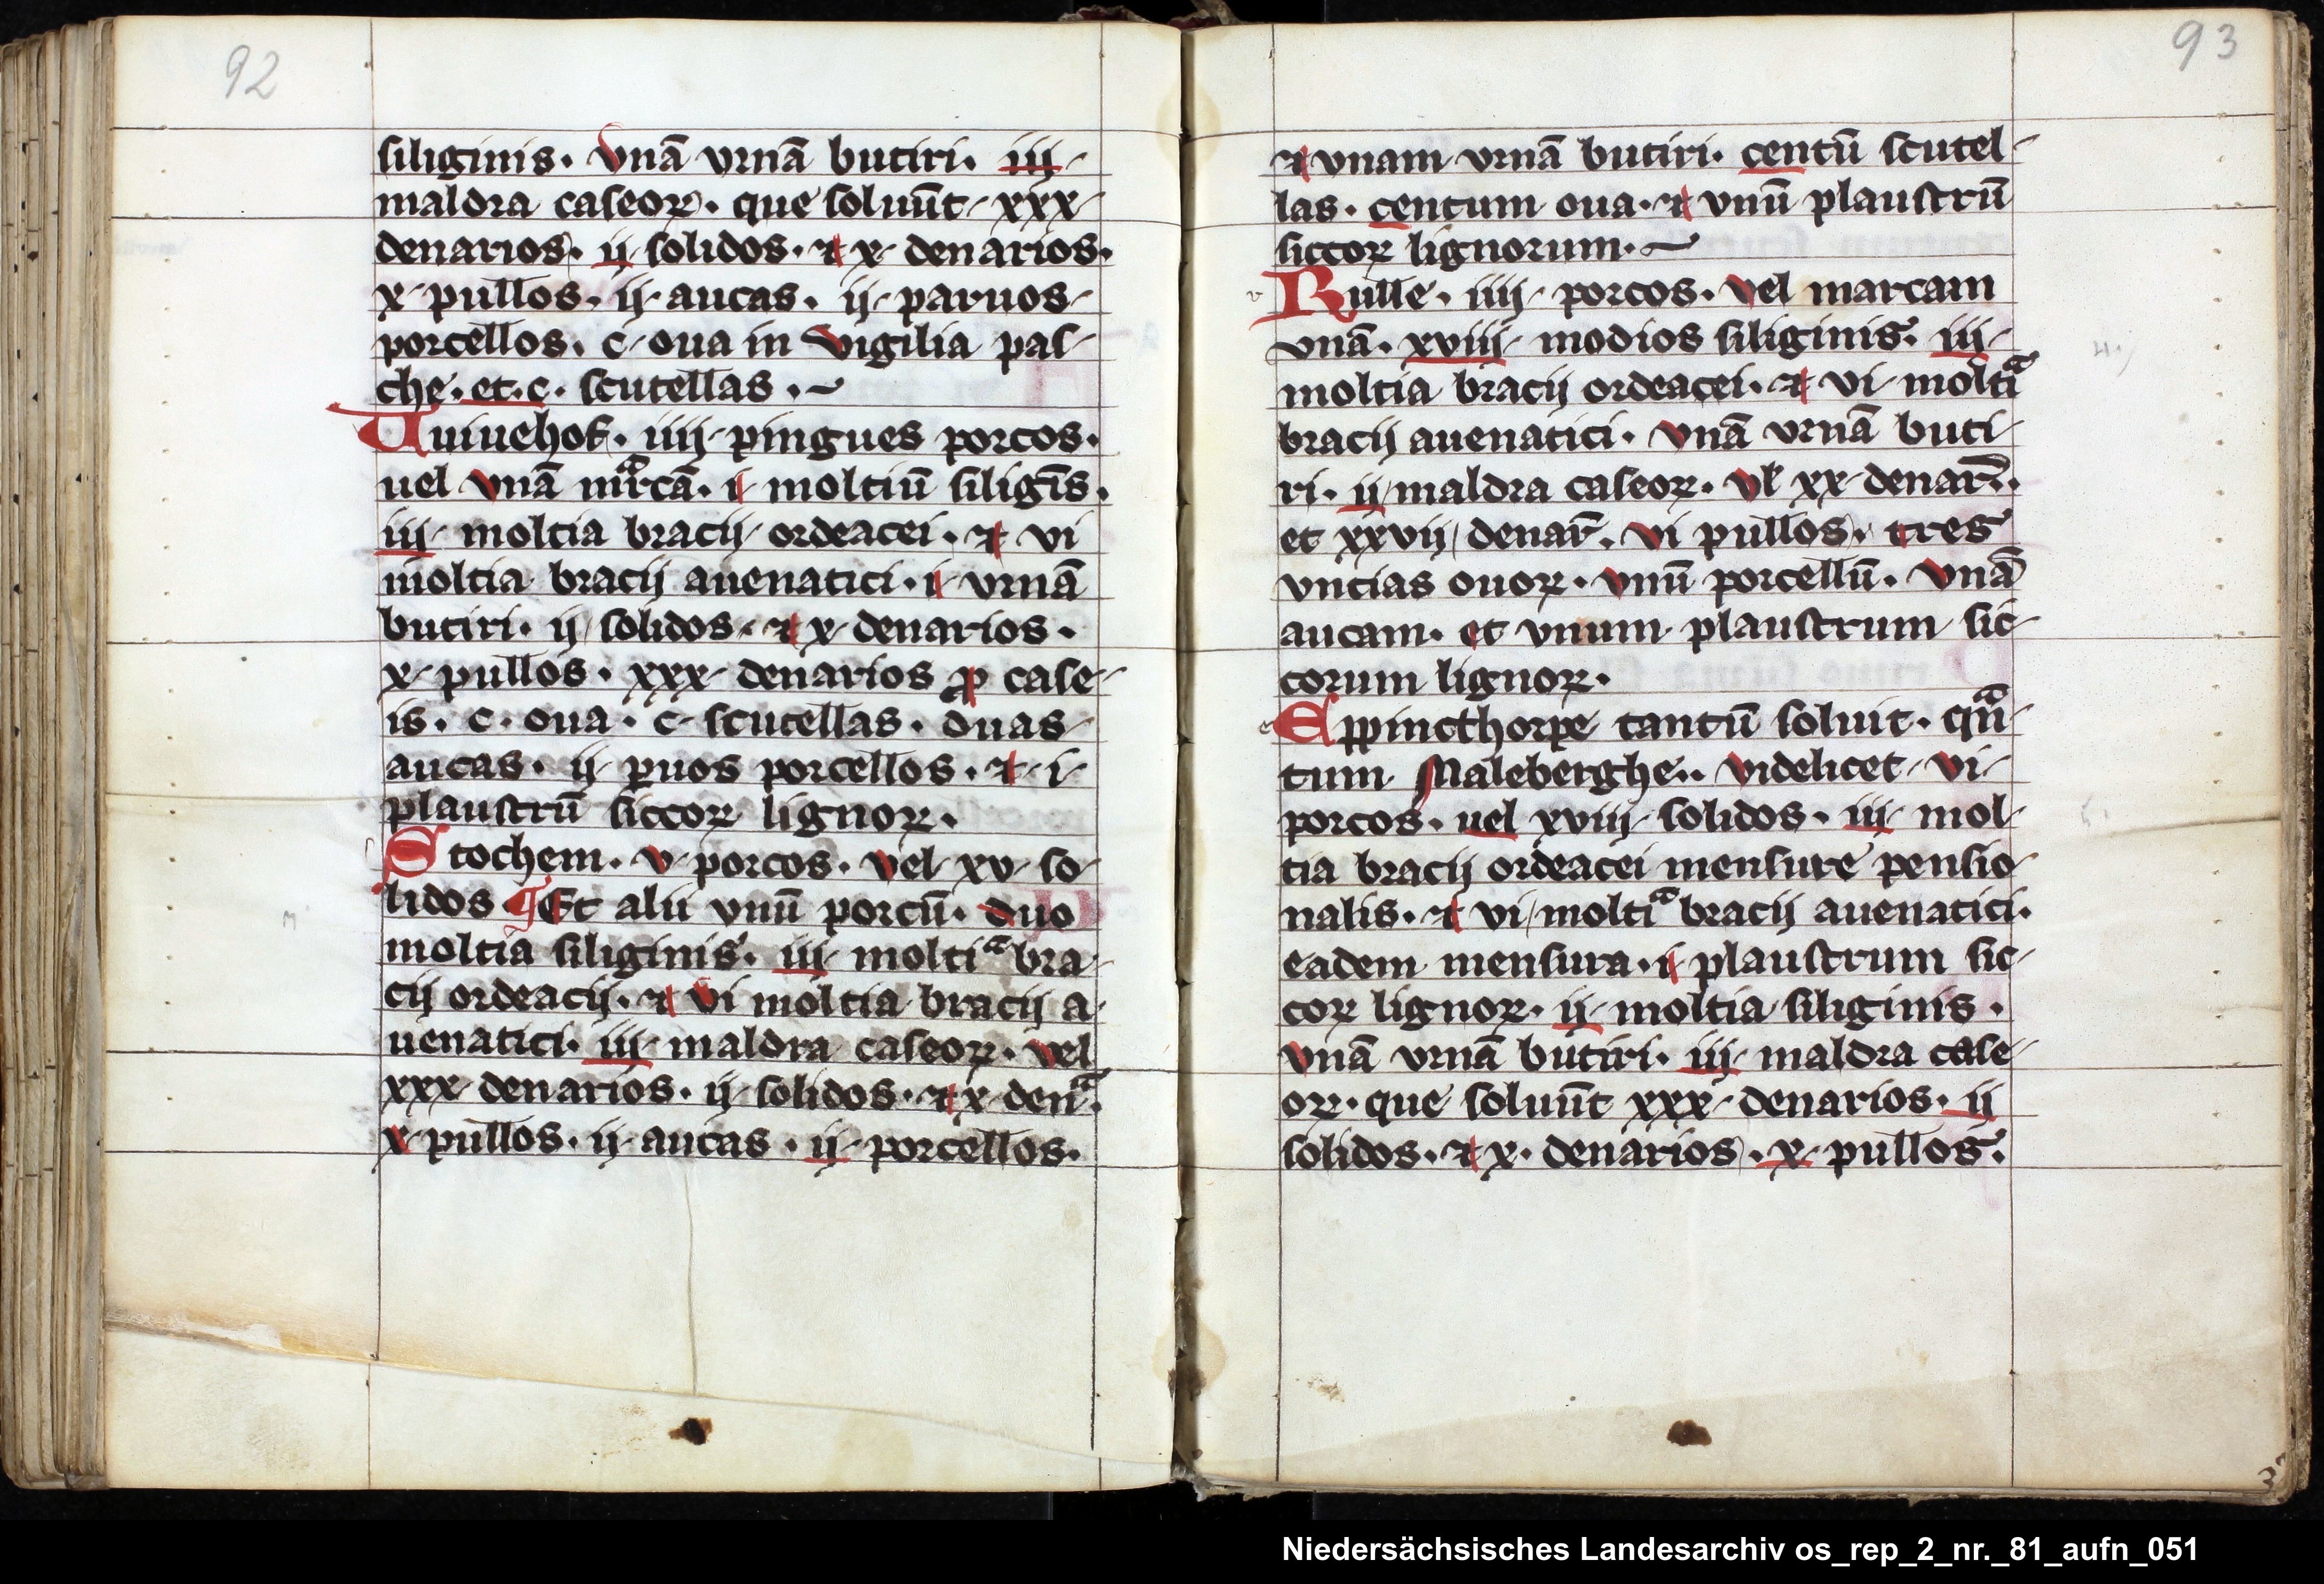 92
siliginis. vnā vrnā butiri. iij
maldra caseoꝝ. que soluūt xxx
denarios. ij solidos. ⁊ x denarios.
x pullos. ij aucas. ij paruos
porcellos. c oua in vigilia pas
che. et. c. scutellas.
Tuiuehok. iiij pingues porcos.
uel vnā mᵃrcā. i moltiū siligīs.
iij moltia bracij ordeacei. ⁊ vi
moltia bracij auenatici. i vrnā
butiri. ij solidos. ⁊ x denarios.
x pullos. xxx denarios ꝓ case
is. c. oua. c scutellas. duas
aucas. ij ꝑuos porcellos. ⁊ i
plaustrū siccoꝝ lignoꝝ.
Stochem. v porcos. vel xv so
lidos. ¶ Et alii vnū porcū. duo
moltia siliginis. iij moltiᵃ bra
cij ordeacij. ⁊ vi moltia bracij a
uenatici. iij maldra caseoꝝ. vel
xxx denarios. ij solidos. ⁊ x denᵃ.
x pullos. ij aucas. ij porcellos.
93
⁊ vnam vrnā butiri. centū scutel
las. centum oua. ⁊ vnū plaustrū
siccoꝝ lignorum.
Rulle. iiij porcos. vel marcam
vnā. xviij modios siliginis. iij
moltia bracij ordeacei. ⁊ vi moltiᵃ
bracij auenatici. vnā vrnā buti
ri. ij maldra caseoꝝ. vꝉ xx denar̄.
et xxvij denar̄. vi pullos. tres
vncias ouoꝝ. vnū porcellū. vnā
aucam. et vnum plaustrum sic
corum lignoꝝ.
Eppincthorpe tantū soluit. qᵃn
tum Maleberghe.. videlicet vi
porcos. uel xviij solidos. iij mol
tia bracij ordeacei mensure pensio
nalis. ⁊ vi moltiᵃ bracij auenatici.
eadem mensura. i plaustrum sic
coꝝ lignoꝝ. ij moltia siliginis.
vnā vrnā butiri. iij maldra case
oꝝ. que soluūt xxx denarios. ij
solidos. ⁊ x. denarios. x pullos.
Niedersächsisches Landesarchiv os_rep_2_nr._81_aufn_051